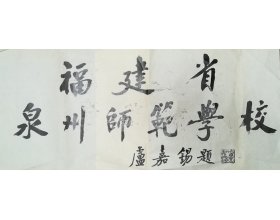 福建省
泉州師範學校
盧嘉錫題